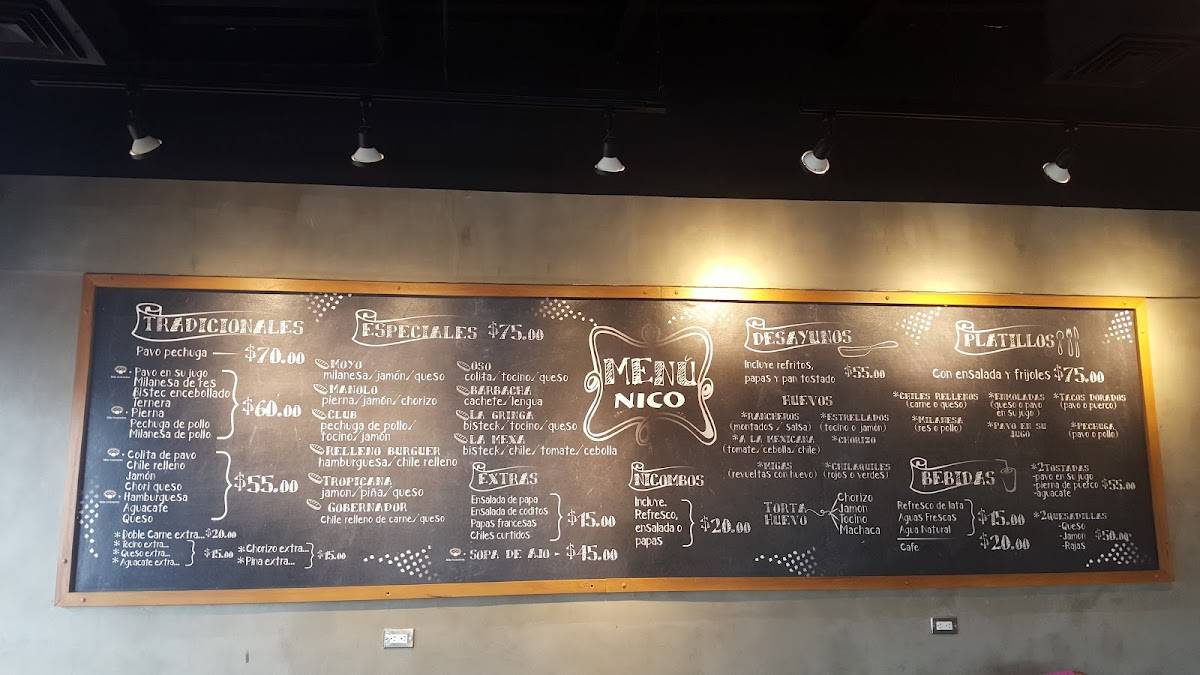 TRADICIONALES
Pavo pechuga — $70.00
Pavo en su jugo
Milanesa de res
Bistec encebollado
Ternera
Pierna
Pechuga de pollo
Milanesa de pollo
$60.00
Colita de pavo
Chile relleno
Jamón
Chori queso
Hamburguesa
Aguacate
Queso
$55.00
*Doble Carne extra...$20.00
*Tocino extra...
*Queso extra...
*Aguacate extra...
$15.00
*Chorizo extra...
*Piña extra...
$15.00
ESPECIALES $75.00
MOYO
milanesa/jamón/queso
MANOLO
pierna/jamón/chorizo
CLUB
pechuga de pollo/
tocino/jamón
RELLENO BURGUER
hamburguesa/chile relleno
TROPICANA
jamon/piña/queso
GOBERNADOR
Chile relleno de carne/queso
OSO
colita/tocino/queso
BARBACHA
cachete/lengua
LA GRINGA
bisteck/tocino/queso
LA MEXA
bisteck/chile/tomate/cebolla
EXTRAS
Ensalada de papa
Ensalada de coditos
Papas francesas
Chiles curtidos
$15.00
SOPA DE AJO - $45.00
MENÚ
NICO
NICOMBOS
Incluye.
Refresco,
ensalada o
papas
$20.00
DESAYUNOS
Incluye refritos,
papas y pan tostado
$55.00
HUEVOS
*RANCHEROS
(montados / salsa)
*A LA MEXICANA
(tomate/cebolla/chile)
*MIGAS
(revueltas con huevo)
*ESTRELLADOS
(tocino o jamón)
*CHORIZO
*CHILAQUILES
(rojos o verdes)
TORTA
HUEVO
Chorizo
Jamon
Tocino
Machaca
PLATILLOS
Con ensalada y frijoles $75.00
*CHILES RELLENOS
(carne o queso)
*MILANESA
(res o pollo)
*ENMOLADAS
(queso o pavo
en su jugo)
*PAVO EN SU
JUGO
*TACOS DORADOS
(pavo o puerco)
*PECHUGA
(pavo o pollo)
BEBIDAS
Refresco de lata
Aguas Frescas
Agua Natural
$15.00
Cafe
$20.00
*2TOSTADAS
-pavo en su jugo
-pierna de puerco
-aguacate
$55.00
*2QUESADILLAS
-Queso
-Jamon
-Rajas
$50.00